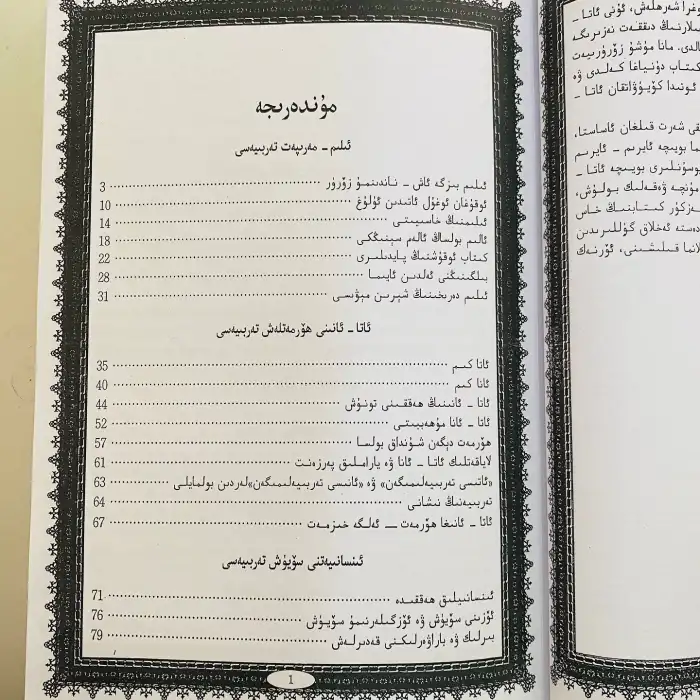 مۇندەرىجە
ئىلىم - مەرىپەت تەربىيەسى
ئىلىم بىزگە ئاش - ناندىنمۇ زۆرۈر 3
ئوقۇغان ئوغۇل ئاتىدىن ئۇلۇغ 10
ئىلىمنىڭ خاسىيىتى 14
ئالىم بولساڭ ئالەم سېنىڭكى 18
كىتاب ئوقۇشنىڭ پايدىلىرى 22
بىلگىنىڭنى ئەلدىن ئايىما 28
ئىلىم دەرىخىنىڭ شېرىن مېۋىسى 31
ئاتا - ئانىنى ھۆرمەتلەش تەربىيەسى
ئاتا كىم 35
ئانا كىم 40
ئاتا - ئانىنىڭ ھەققىنى تونۇش 44
ئاتا - ئانا مۇھەببىتى 52
ھۆرمەت دېگەن شۇنداق بولسا 57
لاياقەتلىك ئاتا - ئانا ۋە يارامלىق پەرزەنت 61
«ئاتىسى تەربىيەلىمىگەن» ۋە «ئانىسى تەربىيەلىمىگەن»لەردىن بولمايلى 63
تەربىيەنىڭ نىشانى 64
ئاتا - ئانىغا ھۆرمەت — ئەلگە خىزمەت 67
ئىنسانىيەتنى سۆيۈش تەربىيەسى
ئىنسانىيلىق ھەققىدە 71
ئۆزىنى سۆيۈش ۋە ئۆزگىلەرنىمۇ سۆيۈش 76
بىرلىك ۋە باراۋەرلىكنى قەدىرلەش 79
1
شەرھلەش، ئۇنى ئاتا -
دىققەت نەزىرىگە
مانا مۇشۇ زۆرۈرىيەت
كىتاب دۇنياغا كەلدى ۋە
ئونىدا كۆيۈۋاتقان ئاتا -
شەرت قىلغان ئاساستا،
بويىچە ئايرىم - ئايرىم
بويىچە ئاتا -
ۋەقەلىك بولۇش،
كىتابنىڭ خاس
دەستە ئەخلاق گۈللىرىدىن
قىلىشىنى، ئۆرنەك